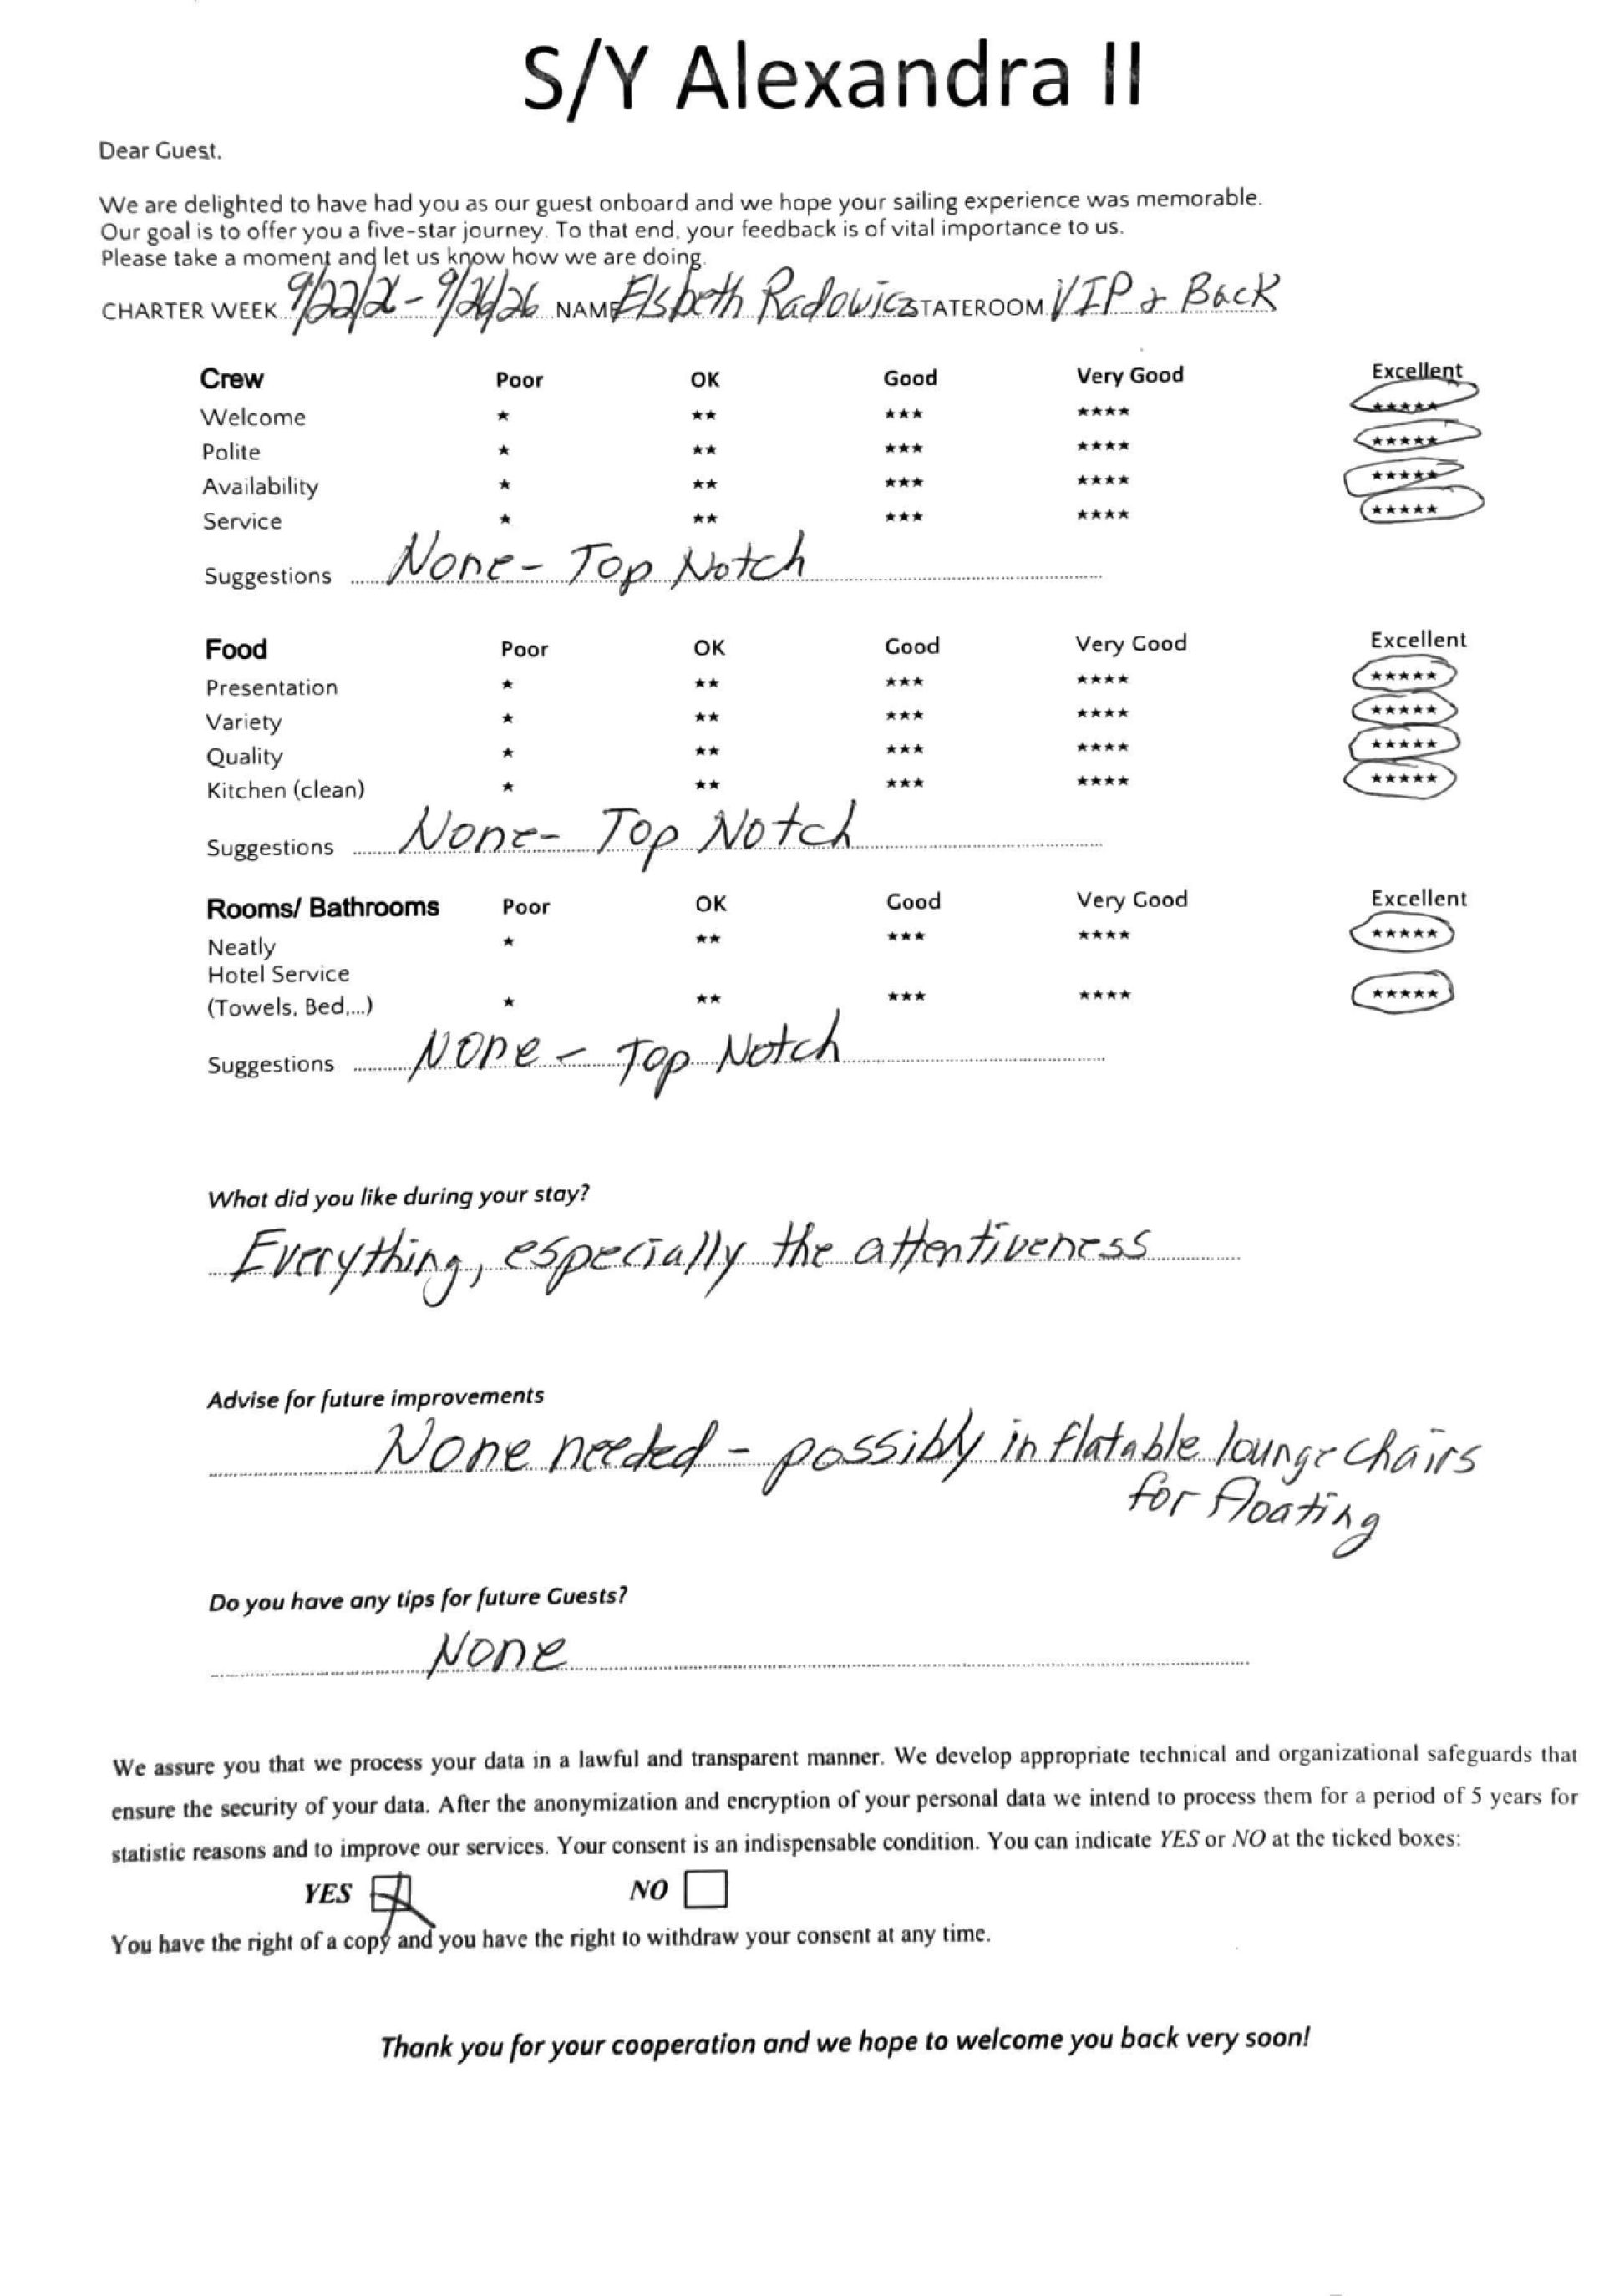 S/Y Alexandra II
Dear Guest,
We are delighted to have had you as our guest onboard and we hope your sailing experience was memorable.
Our goal is to offer you a five-star journey. To that end, your feedback is of vital importance to us.
Please take a moment and let us know how we are doing.
CHARTER WEEK NAME Elsbeth Radowicz STATEROOM VIP & Back
Crew Poor OK Good Very Good Excellent
Welcome ★ ★★ ★★★ ★★★★ ★★★★★
Polite ★ ★★ ★★★ ★★★★ ★★★★★
Availability ★ ★★ ★★★ ★★★★ ★★★★★
Service ★ ★★ ★★★ ★★★★ ★★★★★
Suggestions None - Top Notch
Food Poor OK Good Very Good Excellent
Presentation ★ ★★ ★★★ ★★★★ ★★★★★
Variety ★ ★★ ★★★ ★★★★ ★★★★★
Quality ★ ★★ ★★★ ★★★★ ★★★★★
Kitchen (clean) ★ ★★ ★★★ ★★★★ ★★★★★
Suggestions None - Top Notch
Rooms/ Bathrooms Poor OK Good Very Good Excellent
Neatly ★ ★★ ★★★ ★★★★ ★★★★★
Hotel Service
(Towels, Bed,...) ★ ★★ ★★★ ★★★★ ★★★★★
Suggestions None - Top Notch
What did you like during your stay?
Everything, especially the attentiveness
Advise for future improvements
None needed - possibly inflatable lounge chairs
for floating
Do you have any tips for future Guests?
None
We assure you that we process your data in a lawful and transparent manner. We develop appropriate technical and organizational safeguards that
ensure the security of your data. After the anonymization and encryption of your personal data we intend to process them for a period of 5 years for
statistic reasons and to improve our services. Your consent is an indispensable condition. You can indicate YES or NO at the ticked boxes:
YES NO
You have the right of a copy and you have the right to withdraw your consent at any time.
Thank you for your cooperation and we hope to welcome you back very soon!